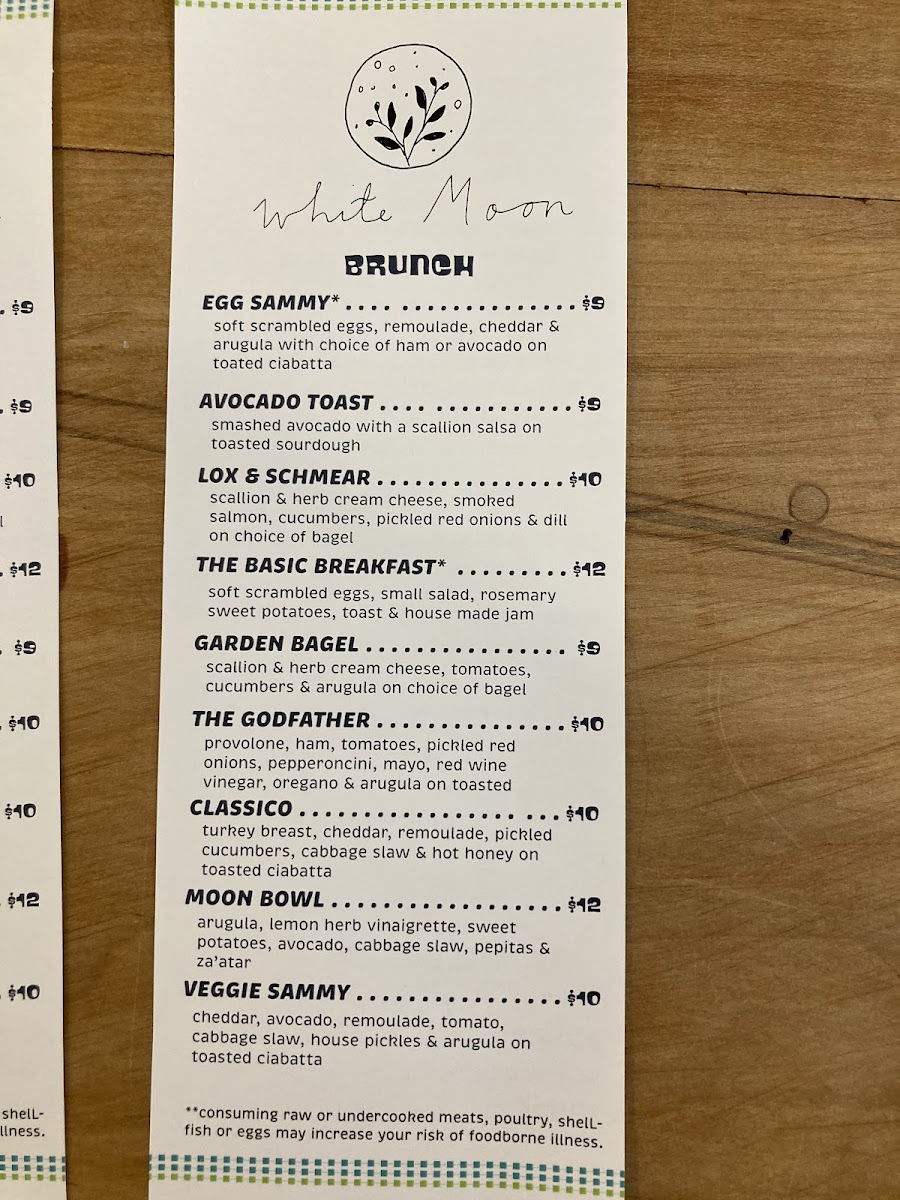 $9
$9
$10
$12
$9
$10
$10
$12
$10
shell-
llness.
White Moon
BRUNCH
EGG SAMMY* .... ............... $9
soft scrambled eggs, remoulade, cheddar &
arugula with choice of ham or avocado on
toated ciabatta
AVOCADO TOAST .... ............ $9
smashed avocado with a scallion salsa on
toasted sourdough
LOX & SCHMEAR ................ $10
scallion & herb cream cheese, smoked
salmon, cucumbers, pickled red onions & dill
on choice of bagel
THE BASIC BREAKFAST* ......... $12
soft scrambled eggs, small salad, rosemary
sweet potatoes, toast & house made jam
GARDEN BAGEL ................. $9
scallion & herb cream cheese, tomatoes,
cucumbers & arugula on choice of bagel
THE GODFATHER ................ $10
provolone, ham, tomatoes, pickled red
onions, pepperoncini, mayo, red wine
vinegar, oregano & arugula on toasted
CLASSICO .................. ... $10
turkey breast, cheddar, remoulade, pickled
cucumbers, cabbage slaw & hot honey on
toasted ciabatta
MOON BOWL ................... $12
arugula, lemon herb vinaigrette, sweet
potatoes, avocado, cabbage slaw, pepitas &
za'atar
VEGGIE SAMMY ................. $10
cheddar, avocado, remoulade, tomato,
cabbage slaw, house pickles & arugula on
toasted ciabatta
**consuming raw or undercooked meats, poultry, shell-
fish or eggs may increase your risk of foodborne illness.